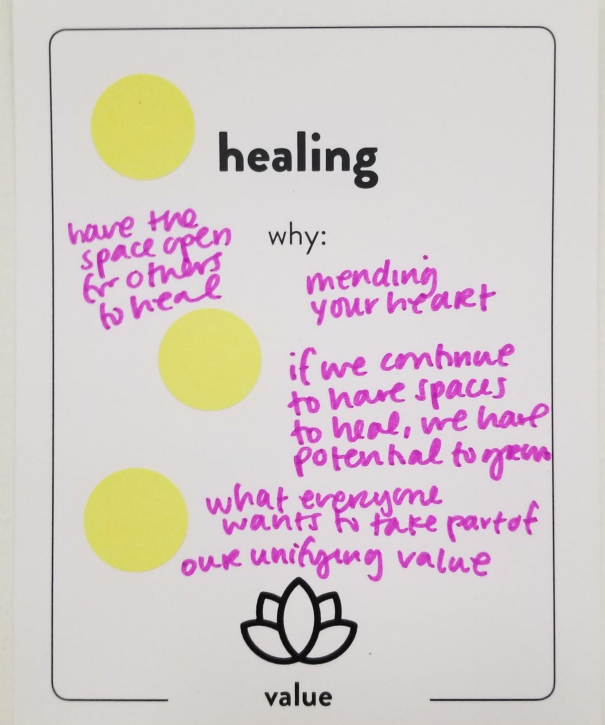 healing
why:
have the
space open
for others
to heal
mending
your heart
if we continue
to have spaces
to heal, we have
potential to grow
what everyone
wants to take part of
our unifying value
value